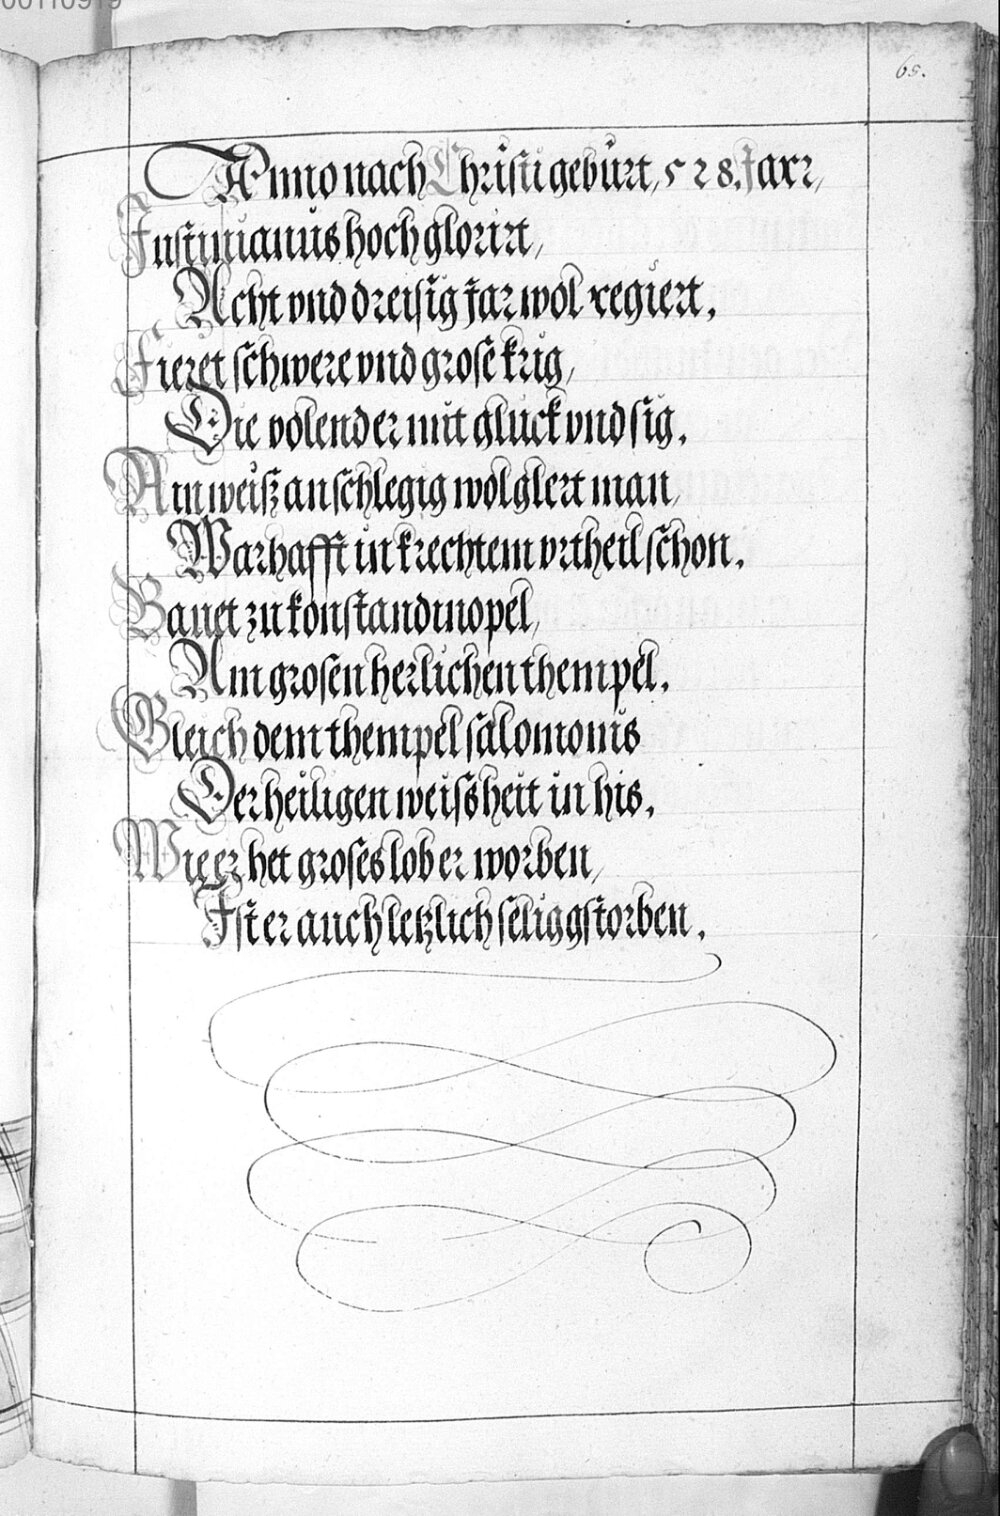 00110919
65.
Anno nach Christi geburt, 528. Jarr,
Justinianus hoch glorirt,
Acht vnd dreisig Jar wol regiert.
Fieret schwere vnd grose krig,
Die volend er mit gluck vnd sig.
Ain weiß anschlegig wol glert man,
Warhafft in krechtem vrtheil schon.
Bauet zu konstandinopel,
Ain grosen herlichen thempel.
Gleich dem thempel salomonis
Der heiligen weissheit in his.
Wie er het groses lob er worben,
Ist er auch letzlich selig gstorben.